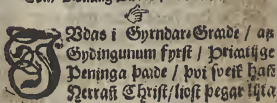 JUdas i Gyrndar-Græde / af
Gydingunum fyrst / Þrimtijge
Peninga þaade / þvi sveik hañ
Herrañ Christ / liost þegar lijta